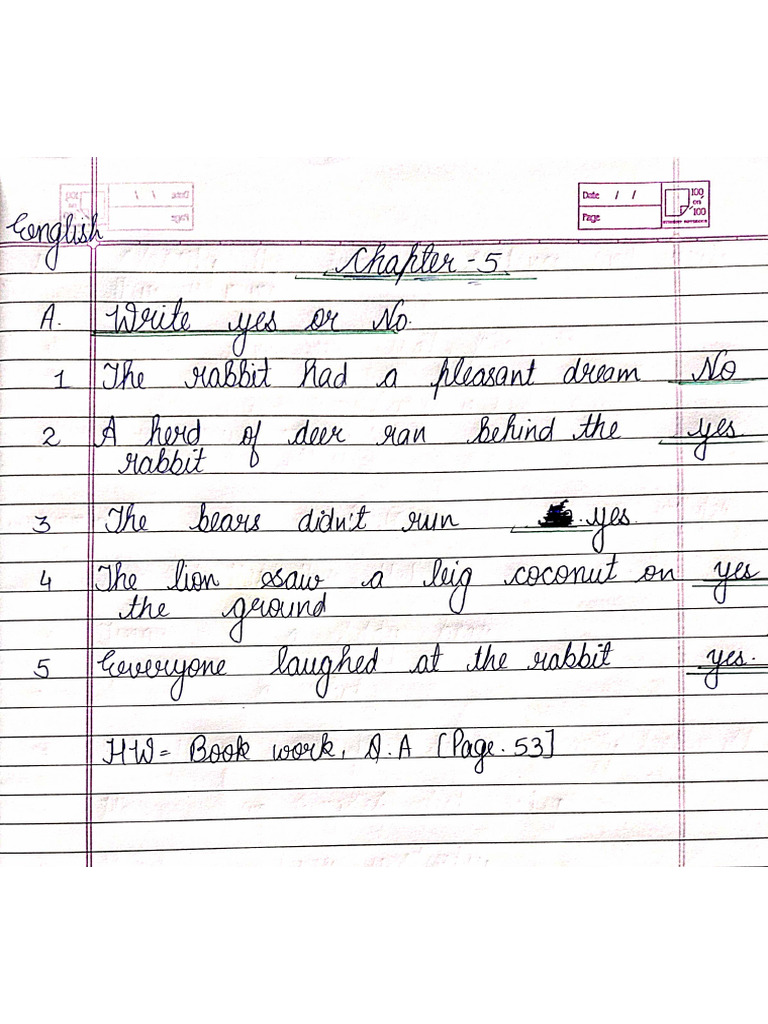 Date / /
100
on
100
Page
English
Chapter - 5
A. Write yes or No.
1 The rabbit had a pleasant dream No
2 A herd of deer ran behind the yes
rabbit
3 The bears didn't run yes.
4 The lion saw a big coconut on yes
the ground
5 Everyone laughed at the rabbit yes.
HW = Book work, Q.A [Page. 53]